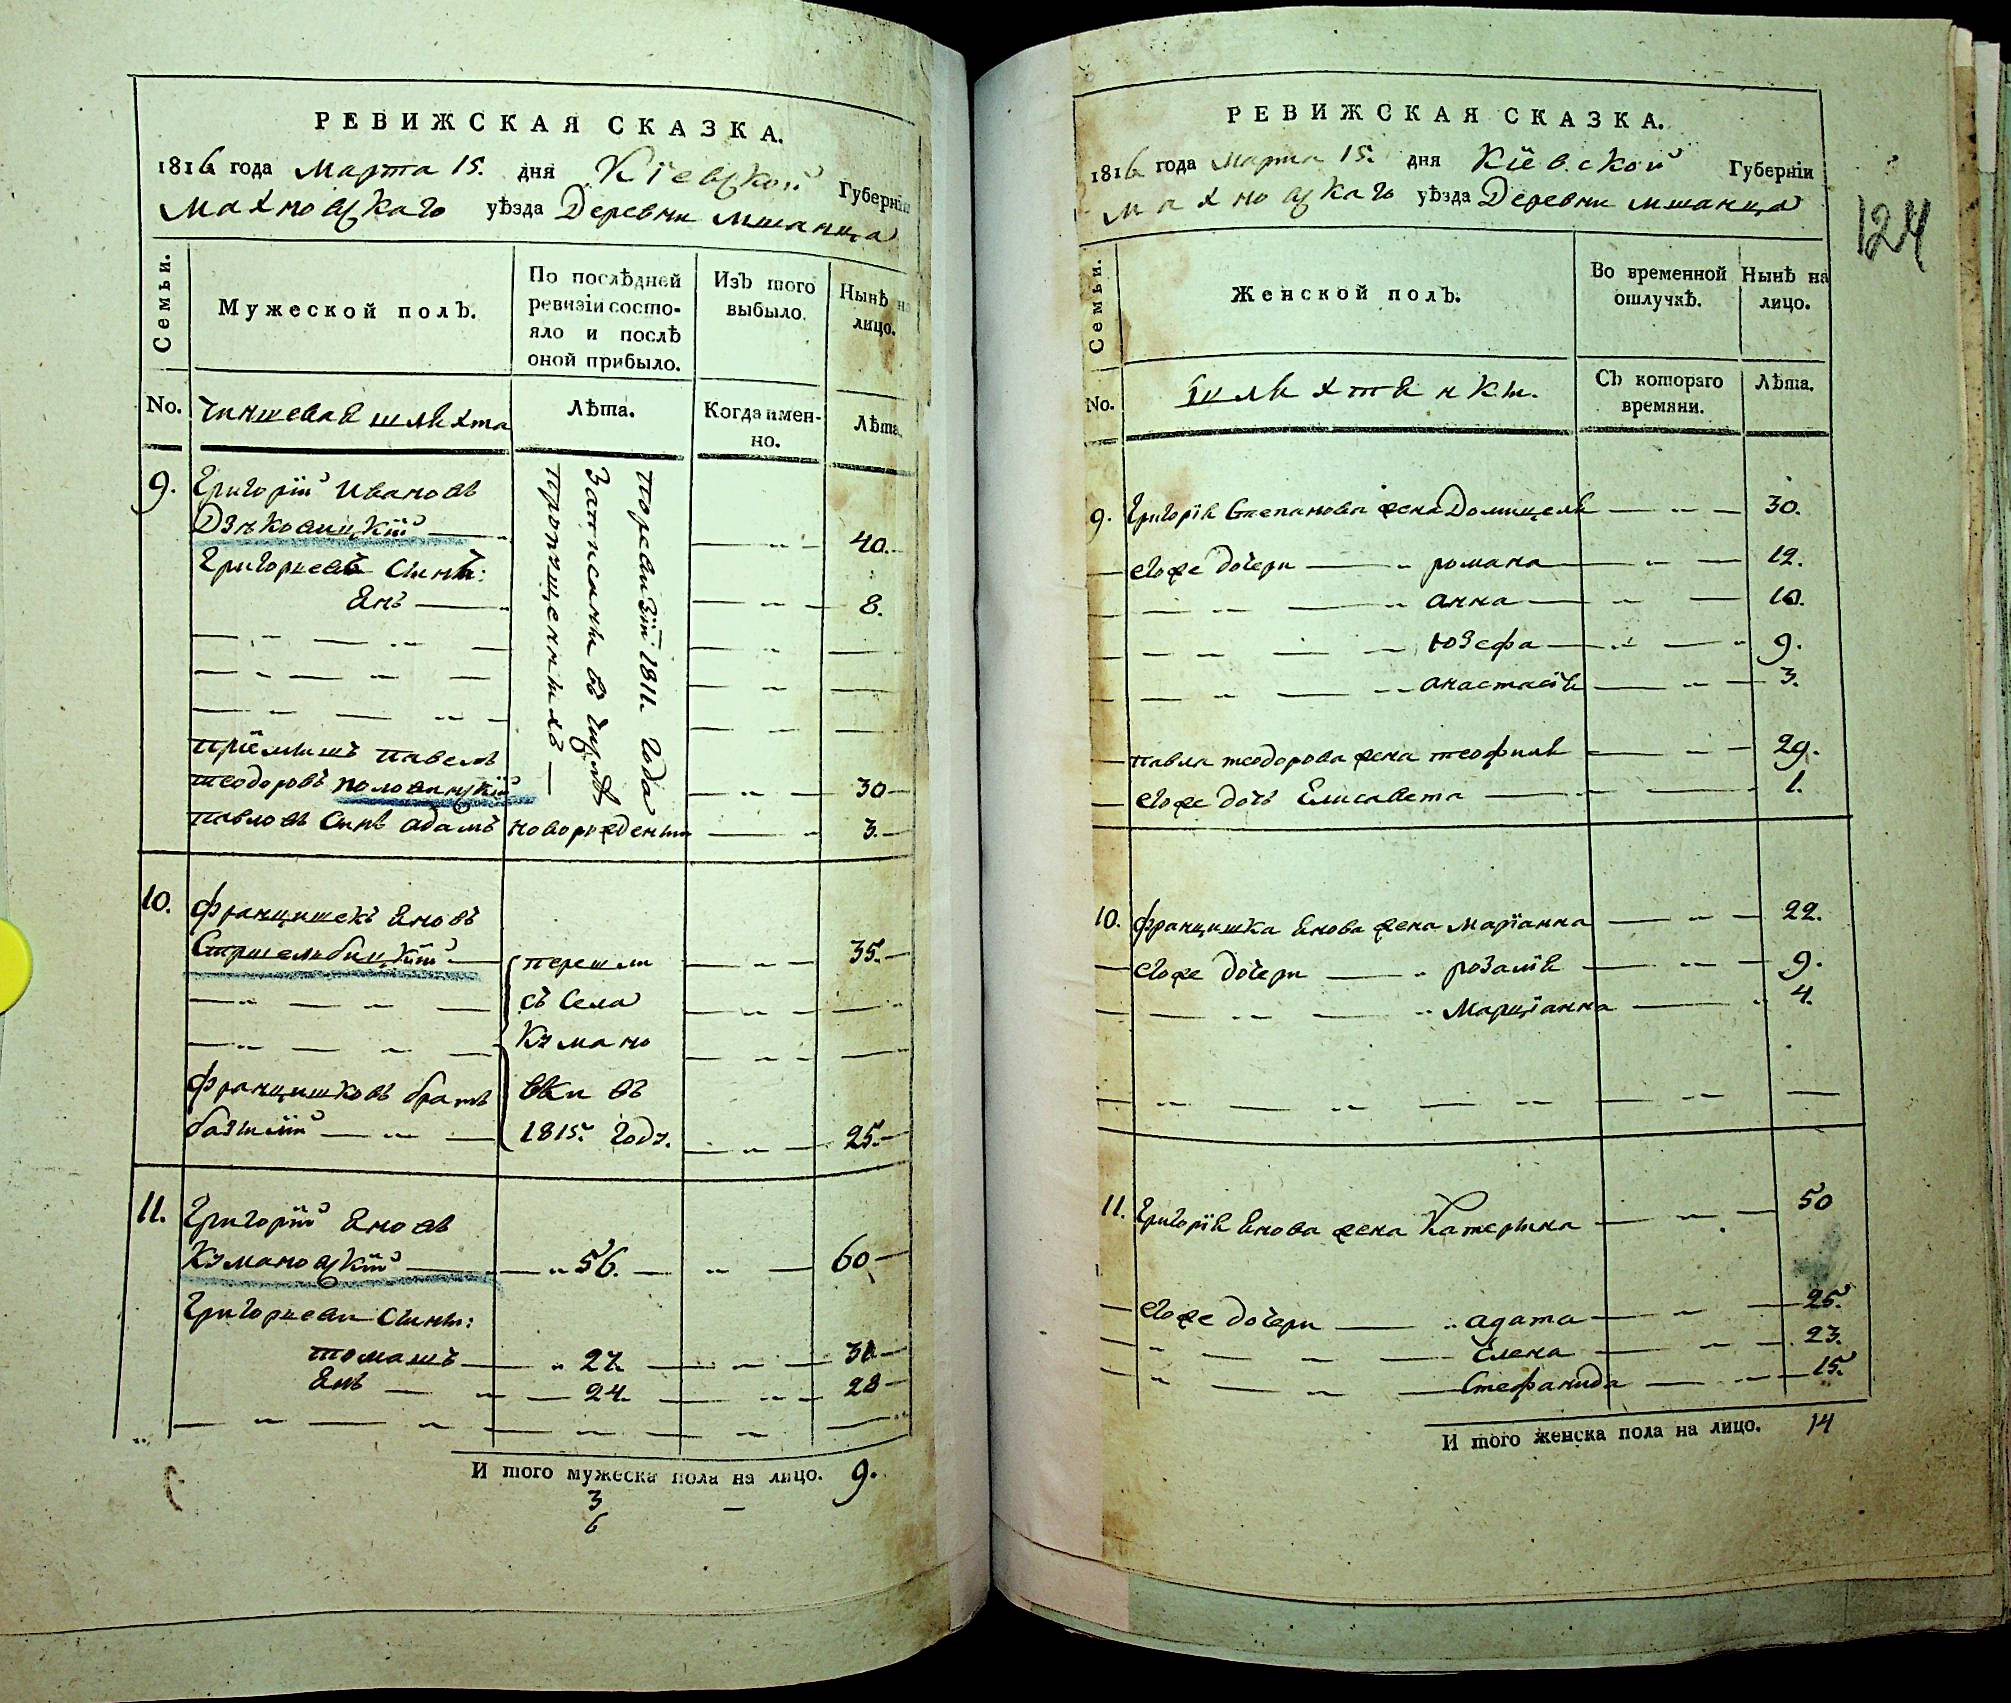 РЕВИЖСКАЯ СКАЗКА.
1816 года Марта 15. дня Кіевской Губерніи
Махновскаго уѣзда Деревни Мшанца
Семьи.
Мужеской полъ.
По послѣдней ревизіи состо-
яло и послѣ
оной прибыло.
Изъ того
выбыло.
Нынѣ на
лицо.
No.
Чиншевая шляхта
Лѣта.
Когда имен-
но.
Лѣта.
9.
Григорій Ивановъ
Дзѣковицкій 40.
Григорьевъ Сынъ:
Янъ 8.
по ревизіи 1811. Года
Записаны въ числѣ
пропущенныхъ
пріёмышъ павелъ
теодоровъ половинскій 30
павловъ Сынъ адамъ новорожденъ 3.
10.
францишекъ Яновъ
Стршельбицкій 35.
перешли
съ Села
Кумано
вки въ
1815. Году.
францишковъ братъ
базилій 25.
11.
Григорій Яновъ
Кумановскій 56. 60
Григорьевы Сыны:
томашъ 27. 31
Янъ 24. 28
И того мужеска пола на лицо. 9.
3
6
РЕВИЖСКАЯ СКАЗКА.
1816 года Марта 15. дня Кіевской Губерніи
Махновскаго уѣзда Деревни Мшанца
124
Семьи.
Женской полъ.
Во временной
отлучкѣ.
Нынѣ на
лицо.
No.
Шляхтянки.
Съ котораго
времяни.
Лѣта.
9. Григорія Степанова жена Домицеля 30.
Его же дочери романа 12.
анна 10.
Юзефа 9.
анастасія 3.
павла теодорова жена теофиля 29.
Его же дочь Елисавета 1.
10. францишка Янова жена Маріанна 22.
Его же дочери розалія 9.
Марціанна 4.
11. Григорія Янова жена Катерына 50
Его же дочери агата 25.
Елена 23.
Стефанида 15.
И того женска пола на лицо. 14